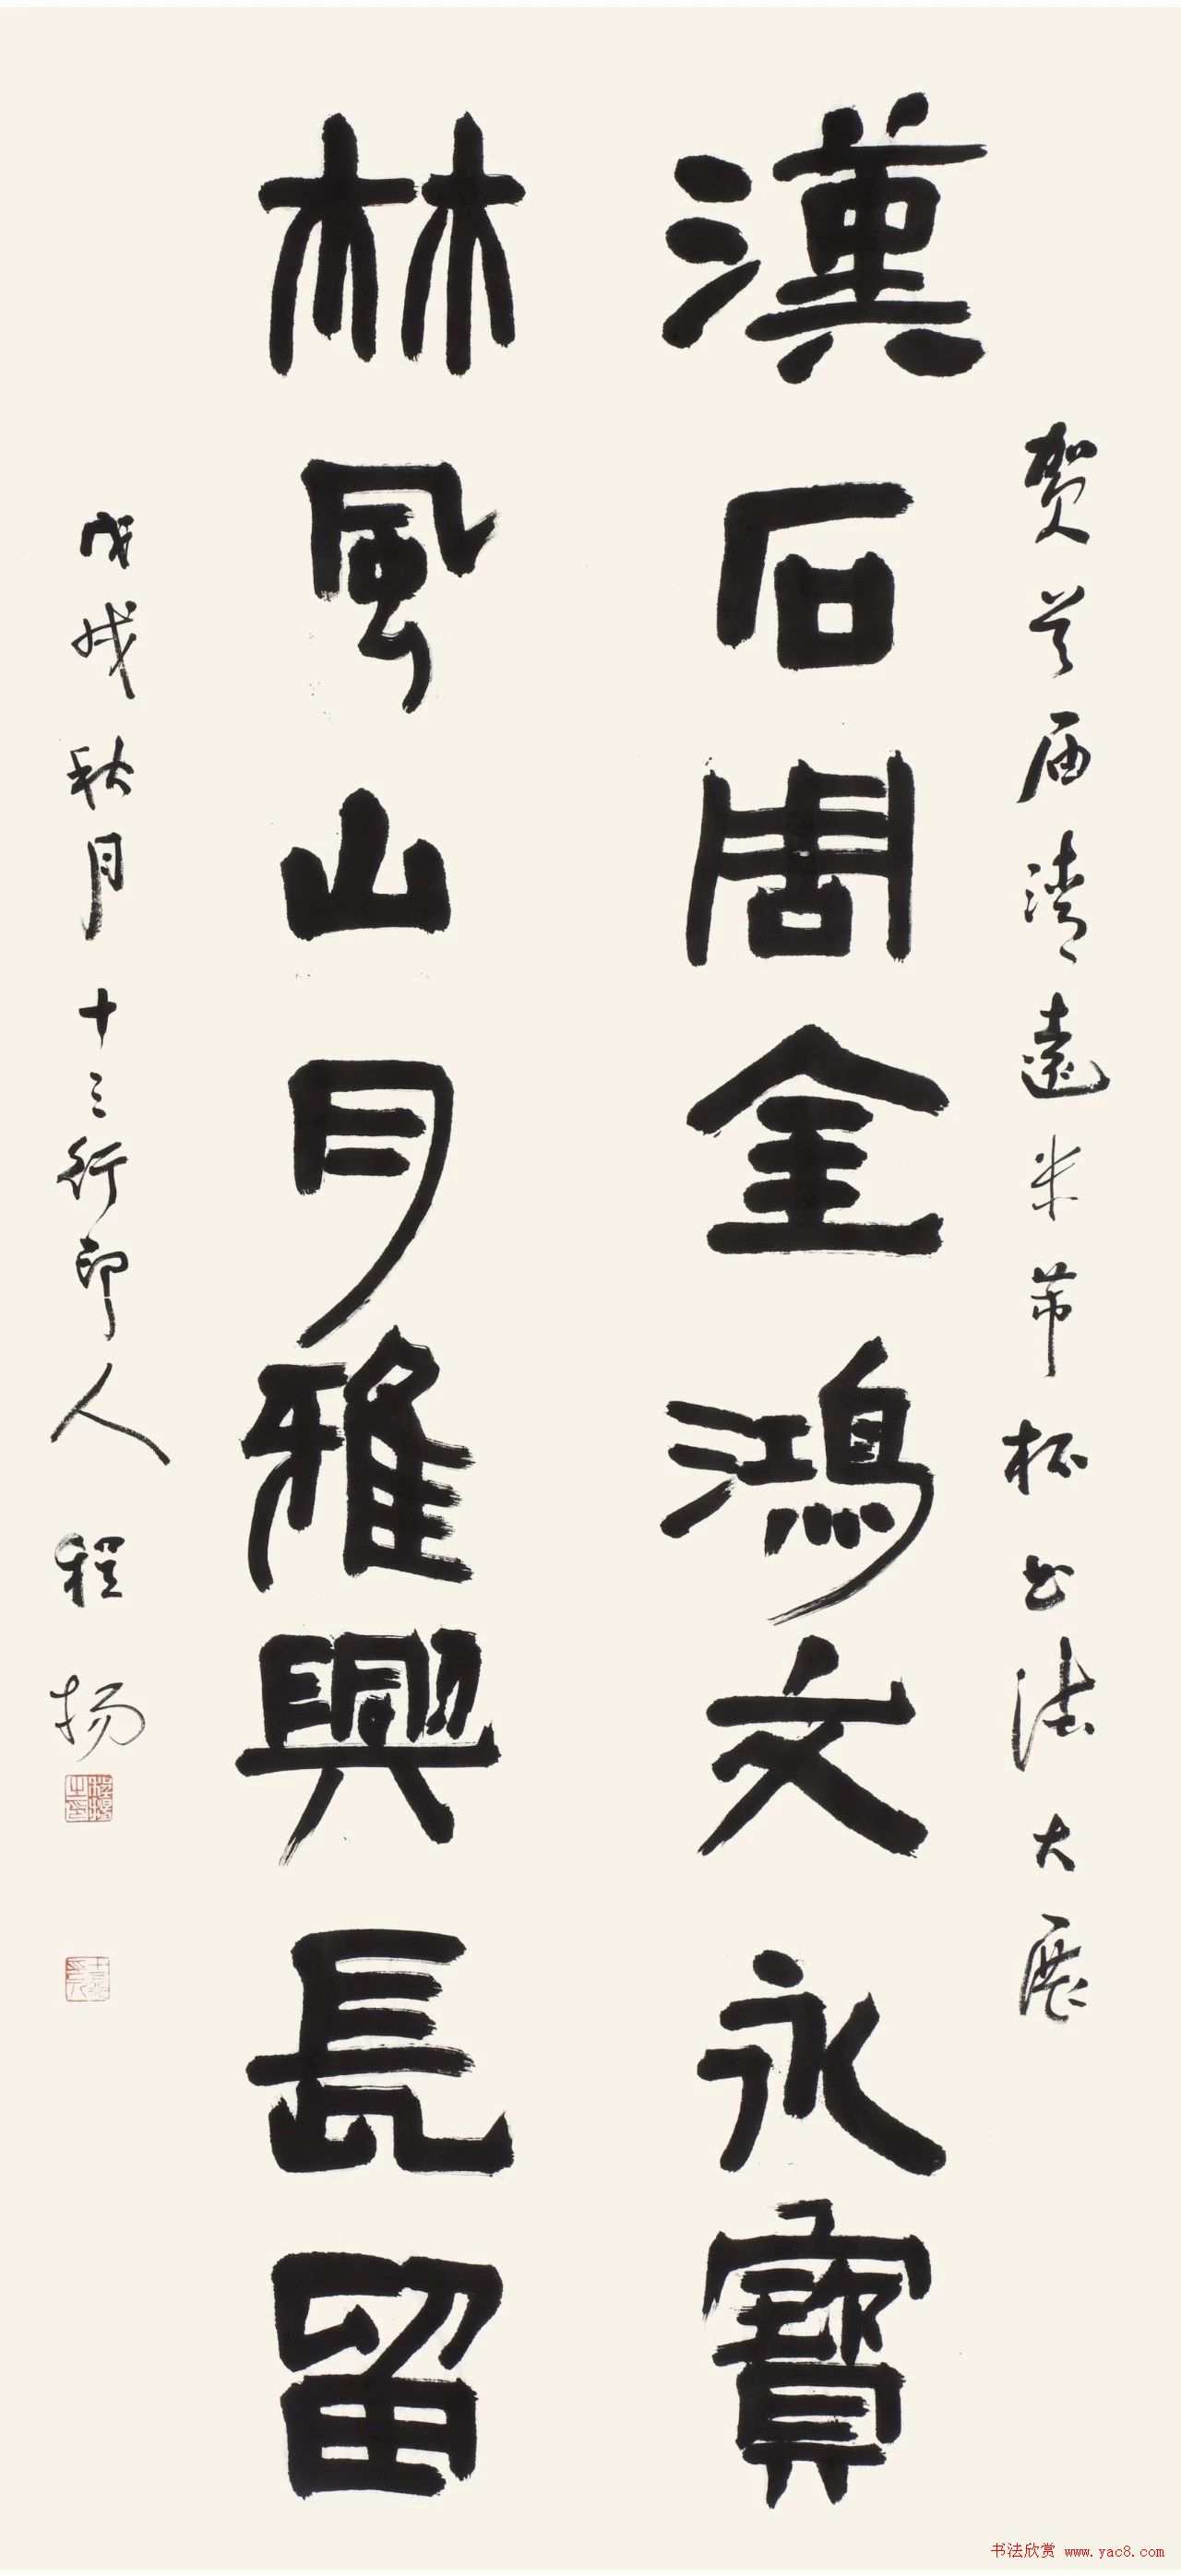 贺首届清远米芾杯书法大展
漢石周金鴻文永寶
林風山月雅興長留
戊戌秋月十三行印人程扬
程揚之印
书法欣赏 www.yac8.com